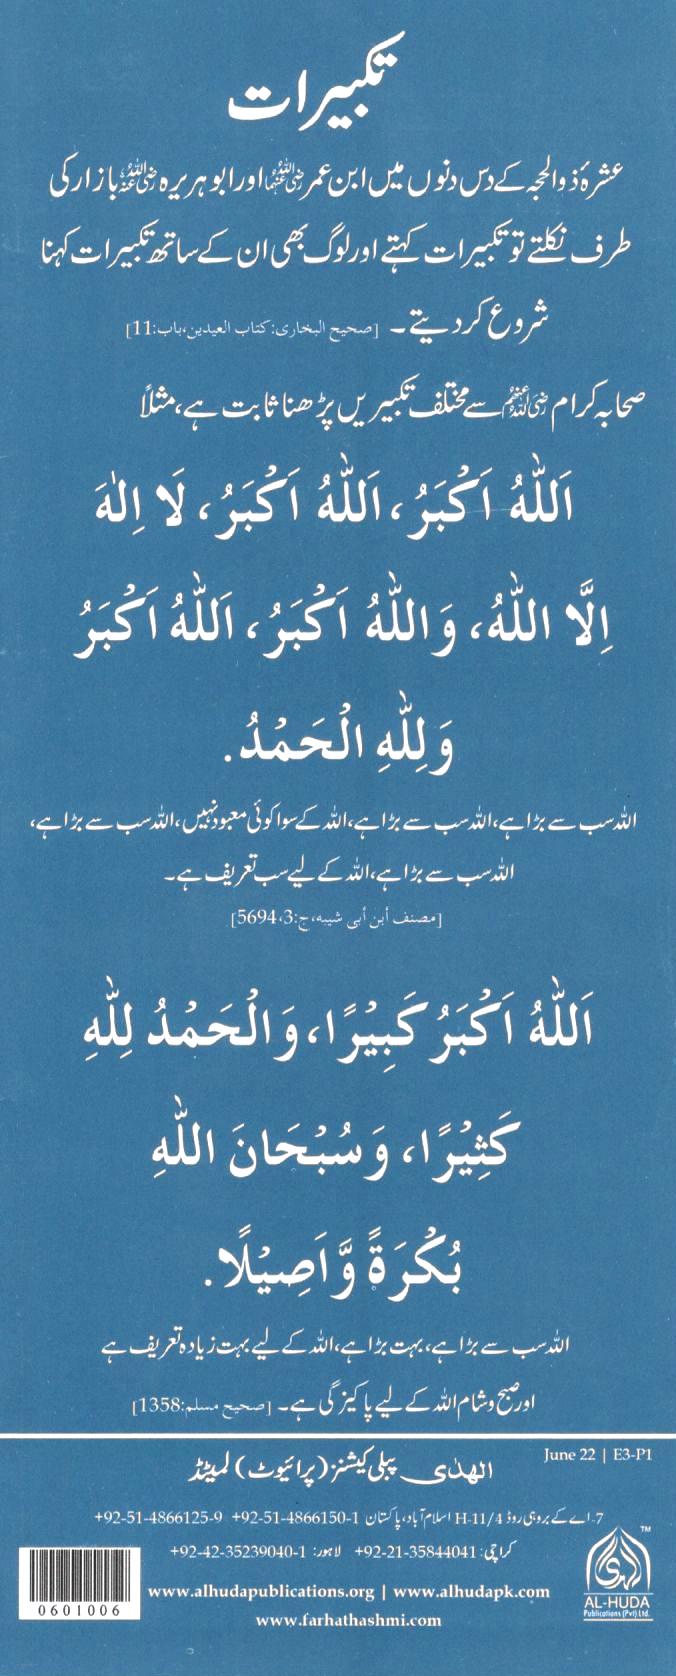 تکبیرات
عشرۂ ذوالحجہ کے دس دنوں میں ابن عمر رضی اللہ عنہما اور ابوہریرہ رضی اللہ عنہ بازار کی
طرف نکلتے تو تکبیرات کہتے اور لوگ بھی ان کے ساتھ تکبیرات کہنا
شروع کردیتے۔ [صحیح البخاری: کتاب العیدین، باب:11]
صحابہ کرام رضی اللہ عنہم سے مختلف تکبیریں پڑھنا ثابت ہے، مثلاً
اَللّٰهُ اَكْبَرُ، اَللّٰهُ اَكْبَرُ، لَا اِلٰهَ
اِلَّا اللّٰهُ، وَاللّٰهُ اَكْبَرُ، اَللّٰهُ اَكْبَرُ
وَلِلّٰهِ الْحَمْدُ.
اللہ سب سے بڑا ہے، اللہ سب سے بڑا ہے، اللہ کے سوا کوئی معبود نہیں، اللہ سب سے بڑا ہے،
اللہ سب سے بڑا ہے، اللہ کے لیے سب تعریف ہے۔
[مصنف أبن أبی شیبه، ج:3، 5694]
اَللّٰهُ اَكْبَرُ كَبِيْرًا، وَالْحَمْدُ لِلّٰهِ
كَثِيْرًا، وَسُبْحَانَ اللّٰهِ
بُكْرَةً وَّاَصِيْلًا.
اللہ سب سے بڑا ہے، بہت بڑا ہے، اللہ کے لیے بہت زیادہ تعریف ہے
اور صبح و شام اللہ کے لیے پاکیزگی ہے۔ [صحیح مسلم:1358]
June 22 | E3-P1
الھدٰی پبلی کیشنز (پرائیوٹ) لمیٹڈ
7۔اے کے بروہی روڈ H-11/4 اسلام آباد، پاکستان +92-51-4866150-1 +92-51-4866125-9
کراچی: +92-21-35844041 لاہور: +92-42-35239040-1
www.alhudapublications.org | www.alhudapk.com
www.farhathashmi.com
0601006
الہدی
TM
AL-HUDA
Publications (Pvt) Ltd.